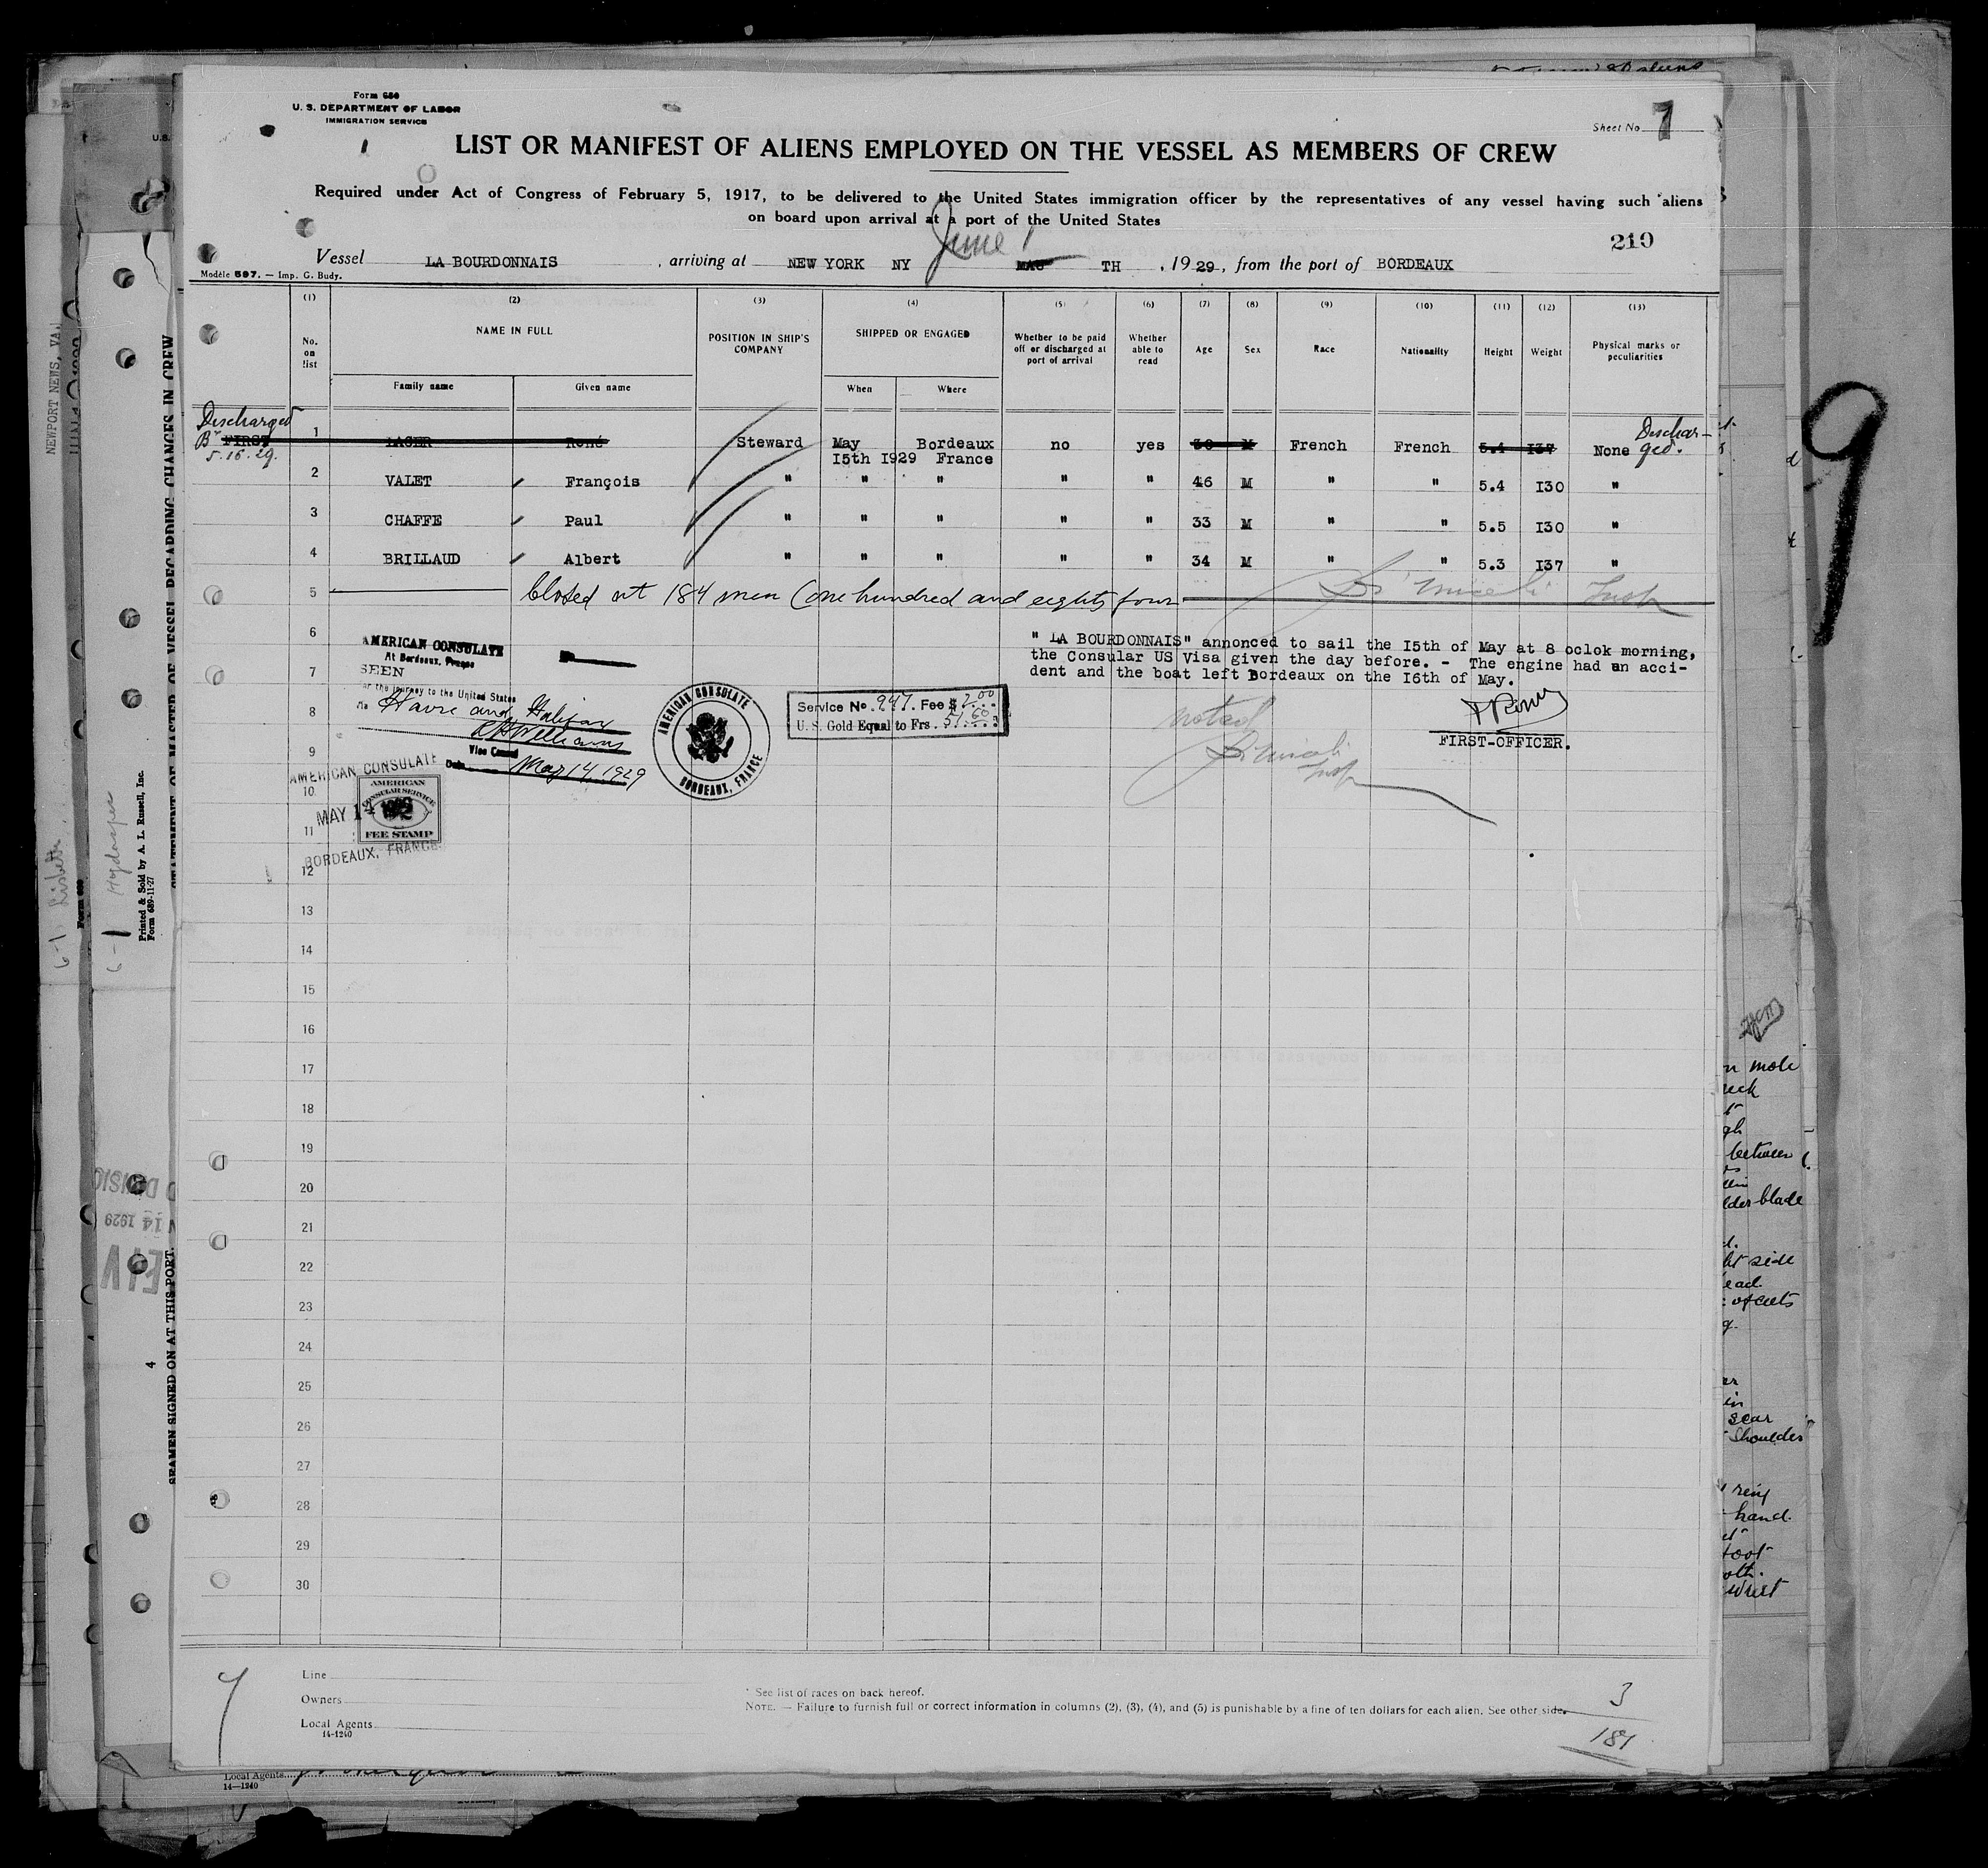 Form 680
U. S. DEPARTMENT OF LABOR
IMMIGRATION SERVICE
Sheet No 7
LIST OR MANIFEST OF ALIENS EMPLOYED ON THE VESSEL AS MEMBERS OF CREW
Required under Act of Congress of February 5, 1917, to be delivered to the United States immigration officer by the representatives of any vessel having such aliens
on board upon arrival at a port of the United States
210
June 1
Vessel LA BOURDONNAIS , arriving at NEW YORK NY TH , 19 29 , from the port of BORDEAUX
Modèle 597. — Imp. G. Budy.
(1) (2) (3) (4) (5) (6) (7) (8) (9) (10) (11) (12) (13)
No. on list NAME IN FULL POSITION IN SHIP'S COMPANY SHIPPED OR ENGAGED Whether to be paid off or discharged at port of arrival Whether able to read Age Sex Race Nationality Height Weight Physical marks or peculiarities
Family name Given name When Where
Discharged
Bx FIRST 1 LAGER René Steward May Bordeaux no yes 30 M French French 5.4 137 None Dischar-
5.16.29. 15th 1929 France ged.
2 VALET François " " " " " 46 M " " 5.4 130 "
3 CHAFFE Paul " " " " " 33 M " " 5.5 130 "
4 BRILLAUD Albert " " " " " 34 M " " 5.3 137 "
5 Closed at 184 men (one hundred and eighty four
6
" LA BOURDONNAIS" annonced to sail the 15th of May at 8 oclok morning,
the Consular US Visa given the day before. - The engine had an acci-
dent and the boat left Bordeaux on the 16th of May.
FIRST-OFFICER.
AMERICAN CONSULATE
At Bordeaux, France
7 SEEN
for the journey to the United States
via Havre and Halifax
8
Williams
9 Vice Consul
Date May 14, 1929
AMERICAN CONSULATE BORDEAUX, FRANCE
Service No. 947. Fee $ 2.00
U.S. Gold Equal to Frs. 51.60
noted
AMERICAN CONSULATE
10
MAY 14 1929
AMERICAN
CONSULAR SERVICE
FEE STAMP
11
BORDEAUX, FRANCE
12
13
14
15
16
17
18
19
20
21
22
23
24
25
26
27
28
29
30
Line
Owners
Local Agents
14-1240
* See list of races on back hereof.
NOTE. — Failure to furnish full or correct information in columns (2), (3), (4), and (5) is punishable by a fine of ten dollars for each alien. See other side.
3
181
Local Agents
14—1240
9
NEWPORT NEWS, VA.
STATEMENT OF MASTER OF VESSEL REGARDING CHANGES IN CREW
Printed & Sold by A. L. Russell, Inc.
Form 689-11-27
6-1 Hydaspes
6-1 Lisbeth
Form 680
SEAMEN SIGNED ON AT THIS PORT.
4
14 1929
mole
between
blade
side
scar
shoulder
ring
hand
foot
wrist